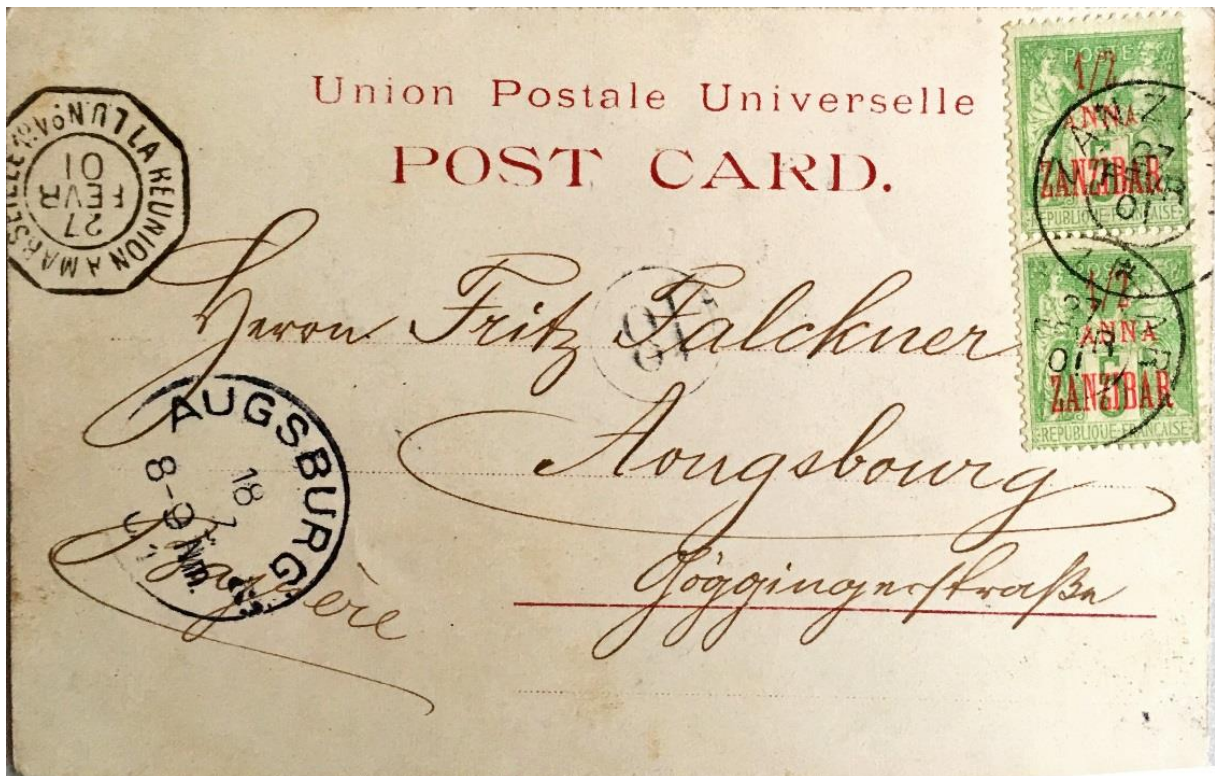 Union Postale Universelle
POST CARD.
LA REUNION A MARSEILLE
27
FEVR
01
POSTE
1/2
ANNA
ZANZIBAR
REPUBLIQUE FRANÇAISE
FEVR
01
1/2
ANNA
ZANZIBAR
REPUBLIQUE FRANÇAISE
01
Herrn Fritz Falckner
Aougsbourg
Göggingerstraße
AUGSBURG
18
8-9 Nm.